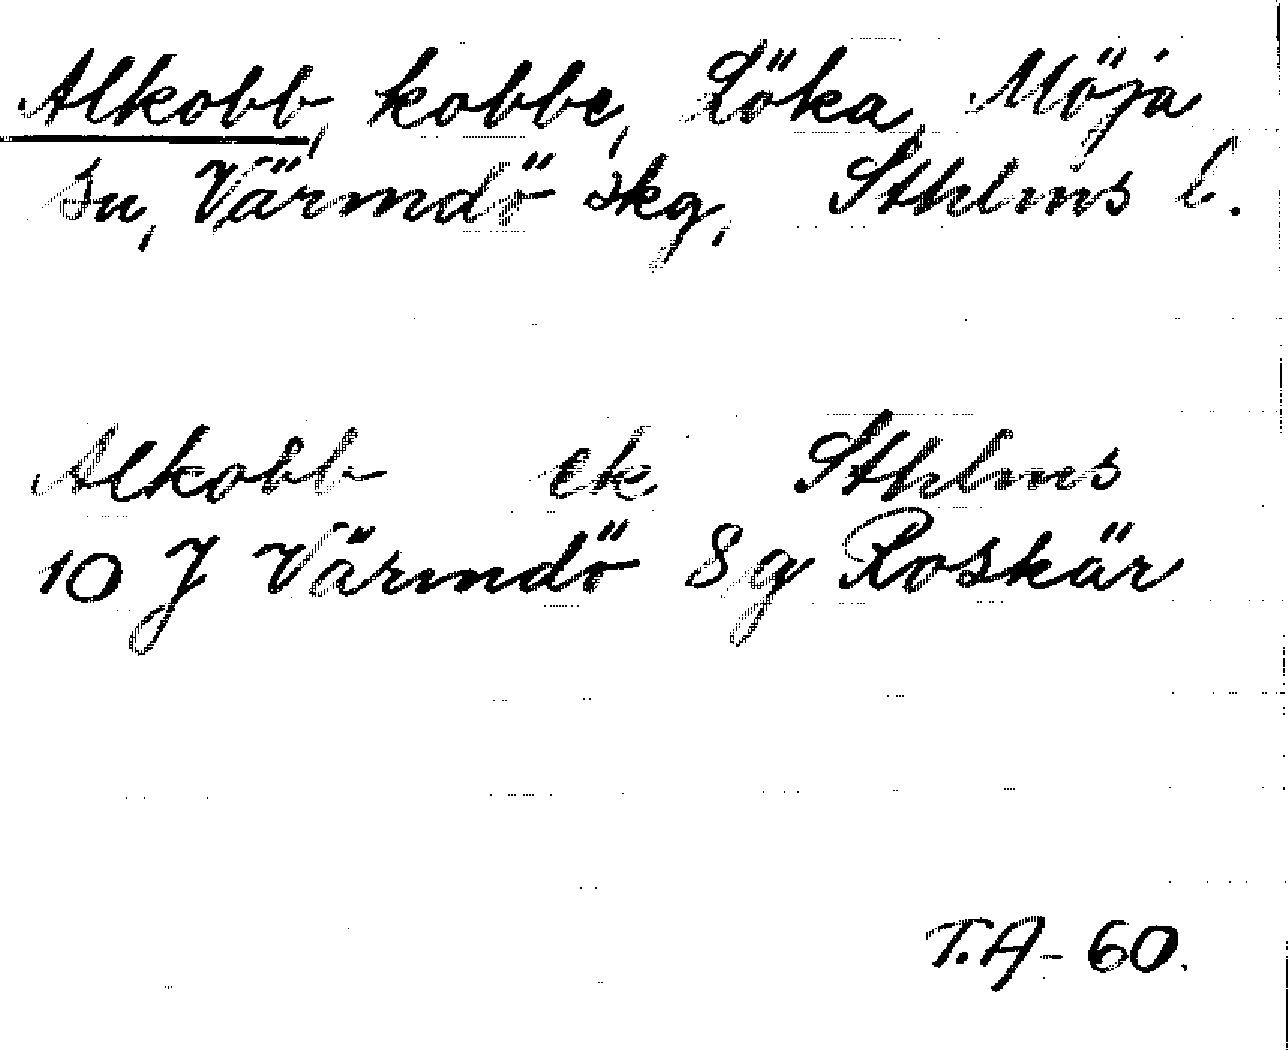 Alkobb, kobbe, Löka, Möja
sn, Värmdö skg, Sthlms l.
Alkobb ek Sthlms
10 J Värmdö 8 g Roskär
T.A-60.